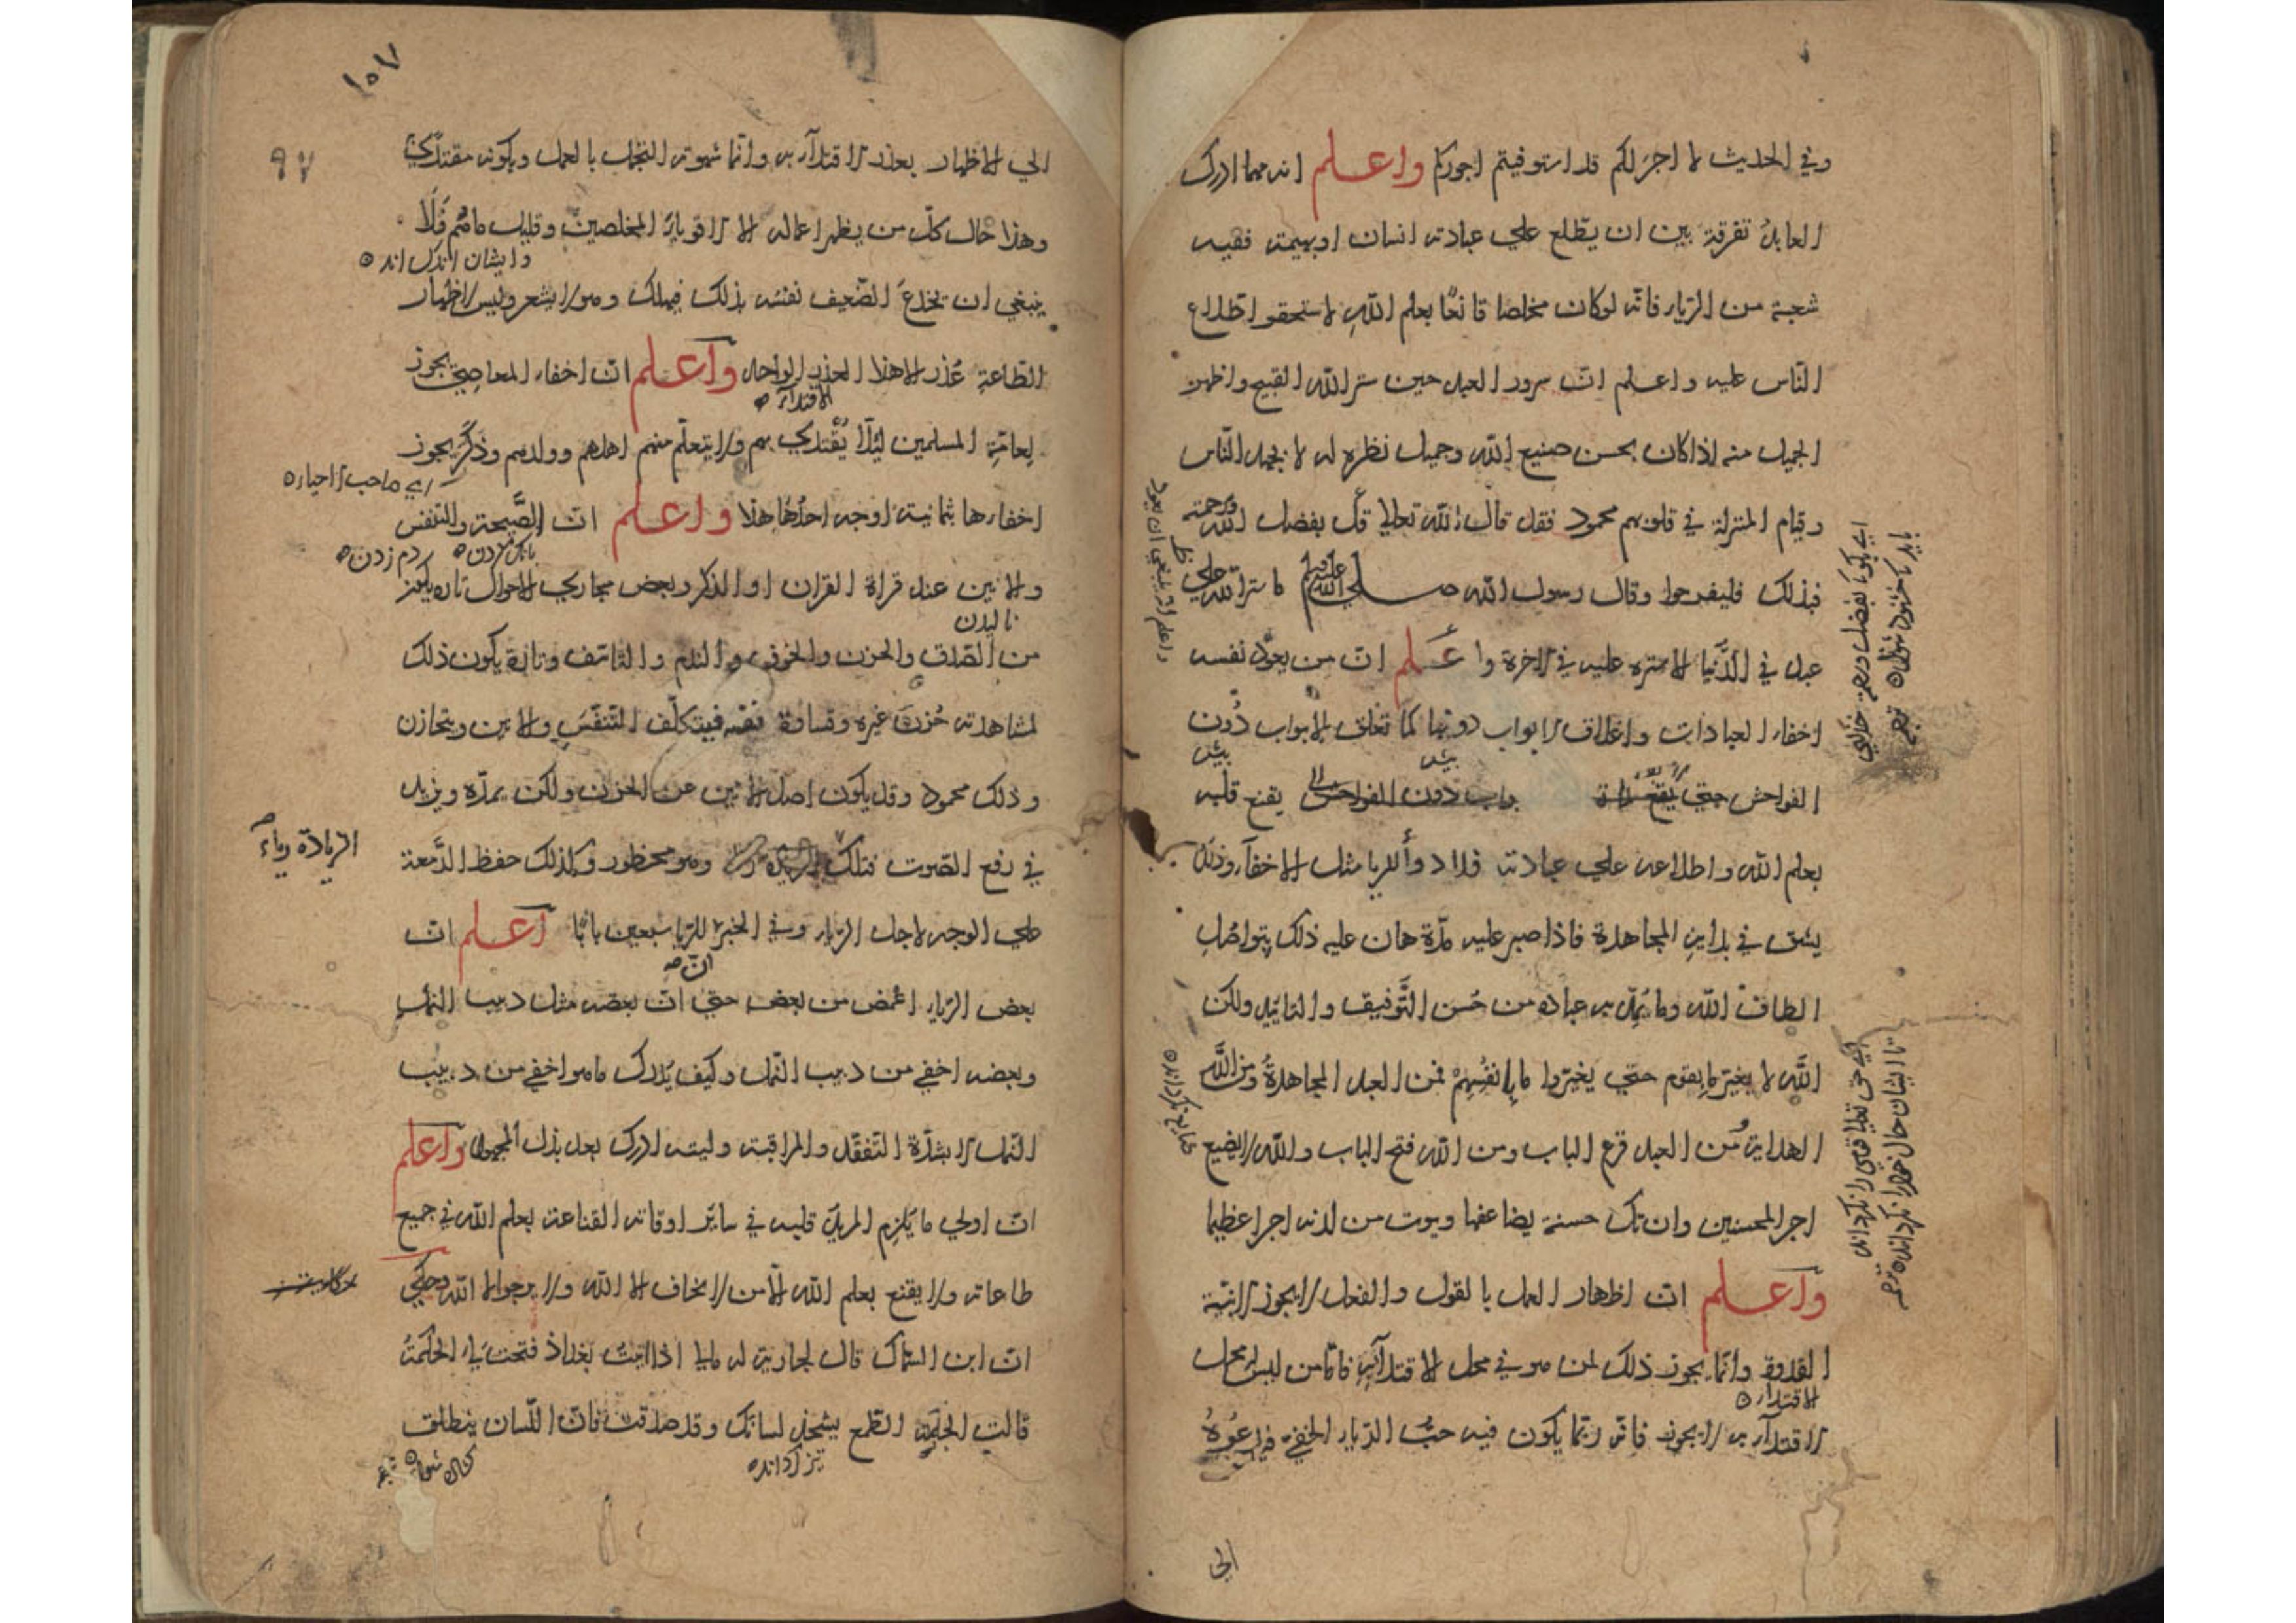 وفي الحديث لا اجر لكم قد استوفيتم اجوركم واعلم انه مهما ادرك
العابد تفرقة بين ان يطلع علي عبادته انسان او بهيمة ففيه
شعبة من الرياء فانه لو كان مخلصا قانعا بعلم الله لاستحقر اطلاع
الناس عليه واعلم ان سرور العبد حين ستر الله القبيح واظهر
الجميل منه اذا كان بحسن صنيع الله وجميل نظره له لا بحمد الناس
وقيام المنزلة في قلوبهم محمود فقد قال الله تعالي قل بفضل الله وبرحمته
فبذلك فليفرحوا وقال رسول الله صلي الله عليه ما ستر الله علي
عبد في الدنيا الا ستره عليه في الاخرة واعلم ان من يعود نفسه
اخفاء العبادات واغلاق الابواب دونها كما تغلق الابواب دون
بيش
بيش
الفواحش يقنع قلبه
بعلم الله واطلاعه علي عبادته فلا دواء للريا مثل الاخفاء وذلك
يشق في بداية المجاهدة فاذا صبر عليه مدة هان عليه ذلك بتواصل
الطاف الله وما يمد به عباده من حسن التوفيق والتاييد ولكن
الله لا يغير ما بقوم حتي يغيروا ما بانفسهم فمن العبد المجاهدة ومن الله
الهداية ومن العبد قرع الباب ومن الله فتح الباب والله لا يضيع
اجر المحسنين وان تك حسنة يضاعفها ويوت من لدنه اجرا عظيما
واعلم ان اظهار العمل بالقول والفعل لا يجوز الا بنية
القدوة وانما يجوز ذلك لمن هو في محل الاقتداء به فاما من ليس محل
الاقتداء
الاقتداء به لا يجوز فانه ربما يكون فيه حب الرياء الخفي فيدعوه
الي
واعلم انه ينبغي ان يعود
اي بكو بفضل ورحمة خداي
بايد كه خشنود شوند
اي حق تعالي قومي را نكرداند
تا ايشان حال خود را نكردانند
١٥٧
٩٧
الي الاظهار بعذر الاقتداء به وانما شهوته التجمل بالعمل وبكونه مقتدي
وهذا حال كل من يظهر اعماله الا الاقوياء المخلصين وقليل ما هم فلا
وايشان اندك اند
ينبغي ان يخدع الضعيف نفسه بذلك فيهلك وهو لا يشعر وليس لاظهار
الطاعة عذر الا هذا العذر الواحد واعلم ان اخفاء المعاصي يجوز
الاقتداء
لعامة المسلمين لئلا يقتدي بهم ولا يتعلم منهم اهلهم وولدهم وذكر يجوز
اي صاحب الاحياء
اخفاءها ثمانية اوجه احدها هذا واعلم ان الصيحة والتنفس
بانك كردن
دم زدن
والانين عند قراة القران او الذكر وبعض مجاري الاحوال تارة يكون
ناليدن
من الصدق والحزن والخوف والندم والتاسف وتارة يكون ذلك
لمشاهدته حزن غيره وقساوة نفسه فيتكلف التنفس والانين ويتحازن
وذلك محمود وقد يكون اصل الانين عن الحزن ولكن يمده ويزيد
في رفع الصوت فتلك وهو محظور وكذلك حفظ الدمعة
الزيادة رياء
علي الوجه لاجل الرياء وفي الخبر للريا سبعين بابا اعلم ان
ان
بعض الرياء اغمض من بعض حتي ان بعضه مثل دبيب النمل
وبعضه اخفي من دبيب النمل وكيف يدرك ما هو اخفي من دبيب
النمل الا بشدة التفقد والمراقبة وليته ادرك بعد بذل المجهود واعلم
ان اولي ما يلزم المريد قلبه في سائر اوقاته القناعة بعلم الله في جميع
طاعاته ولا يقنع بعلم الله الا من لا يخاف الا الله ولا يرجو الا الله وحكي
ان ابن السماك قال لجارية له مالي اذا اتيت بغداد فتحت لي الحكمة
قالت الجارية الطمع يشحذ لسانك وقد صدقت فان اللسان ينطلق
تيز كرداند